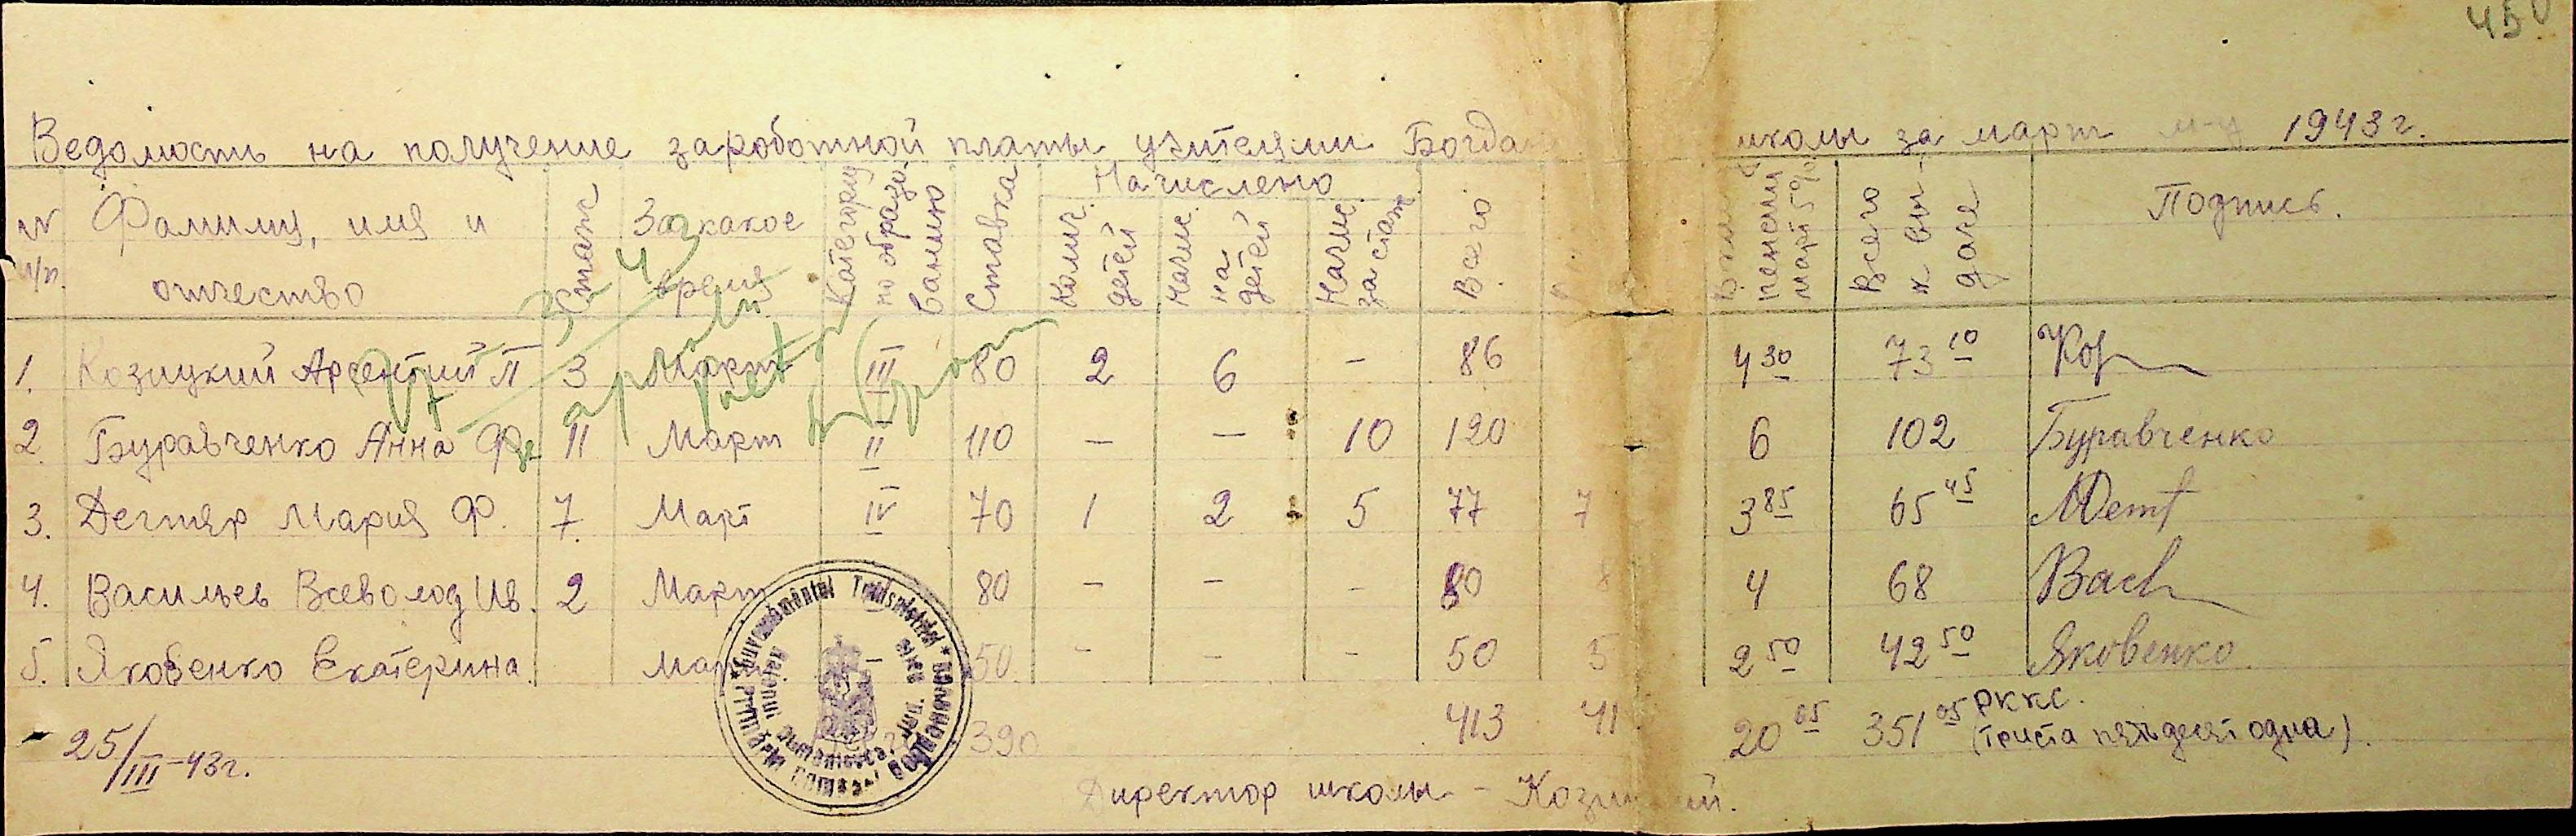 450
Ведомость на получение зароботной платы учителями Богдан школы за март м-ц 1943 г.
№ п/п. Фамилия, имя и отчество Стаж За какое время Категория по образованию Ставка Начислено Всего пенсия март 5% Всего к выдаче Подпись.
Колич. детей Начис. на детей Начис. за стаж
1. Козицкий Арсентий П 3 Март III 80 2 6 – 86 4 30 73 10 Коз
2. Буравченко Анна II Март II 110 – – 10 120 6 102 Буравченко
3. Дегтяр Мария Ф. 7. Март IV 70 1 2 5 77 7 3 85 65 45
4. Васильев Всеволод Ив. 2 Март 80 – – – 80 8 4 68 Вас
5. Яковенко Екатерина. Март – 50. – – – 50 5 2 50 42 50 Яковенко
390 413 41 20 65 351 05 РККС.
(триста пятьдесят одна).
25/III-43г.
Директор школы – Козицкий.